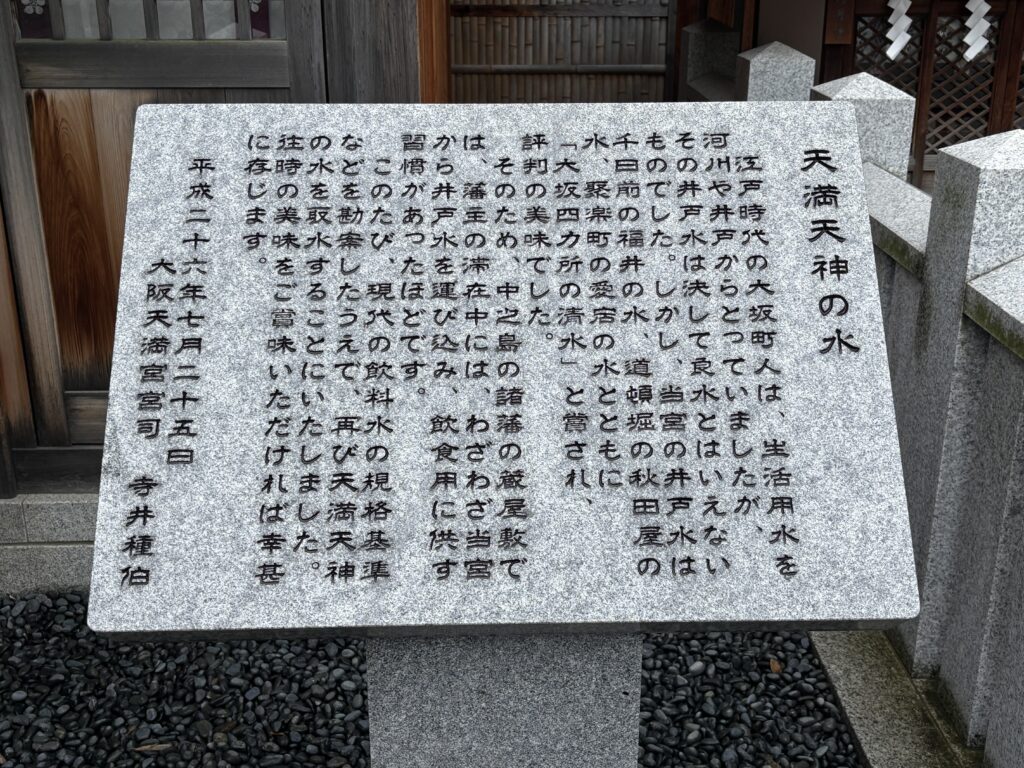 天満天神の水
江戸時代の大坂町人は、生活用水を
河川や井戸からとっていましたが、
その井戸水は決して良水とはいえない
ものでした。しかし、当宮の井戸水は
千日前の福井の水、道頓堀の秋田屋の
水、聚楽町の愛宕の水とともに
「大坂四カ所の清水」と賞され、
評判の美味でした。
そのため、中之島の諸藩の蔵屋敷で
は、藩主の滞在中には、わざわざ当宮
から井戸水を運び込み、飲食用に供す
習慣があったほどです。
このたび、現代の飲料水の規格基準
などを勘案したうえで、再び天満天神
の水を取水することにいたしました。
往時の美味をご賞味いただければ幸甚
に存じます。
平成二十六年七月二十五日
大阪天満宮宮司 寺井種伯